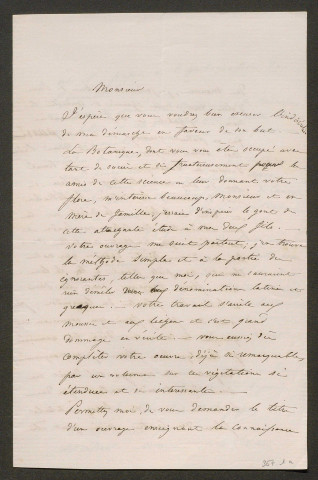 Monsieur
J'espère que vous voudrez bien excuser l'indiscrétion
de ma démarche en faveur de son but
La Botanique, dont vous vous êtes occupé avec
tant de succès et si fructueusement pour les
amis de cette science en leur donnant votre
flore, m'intéresse beaucoup, Monsieur et en
Mère de famille, j'essaie d'inspirer le goût de
cette attrayante étude à mes deux fils.
Votre ouvrage me suit partout, j'en trouve
la méthode simple et à la portée des
ignorantes, telles que moi, qui ne sauraient
rien démêler aux dénominations latines et
grecques — votre travail s'arrête aux
mousses et aux lichens et c'est grand
dommage en vérité — vous auriez dû
compléter votre œuvre déjà si remarquable,
par un volume sur ces végétations si
étendues et si intéressantes —
Permettez moi, de vous demander le titre
d'un ouvrage enseignant la connaissance